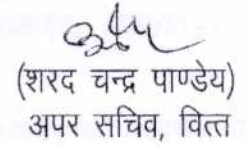 (शरद चन्द्र पाण्डेय)
अपर सचिव, वित्त